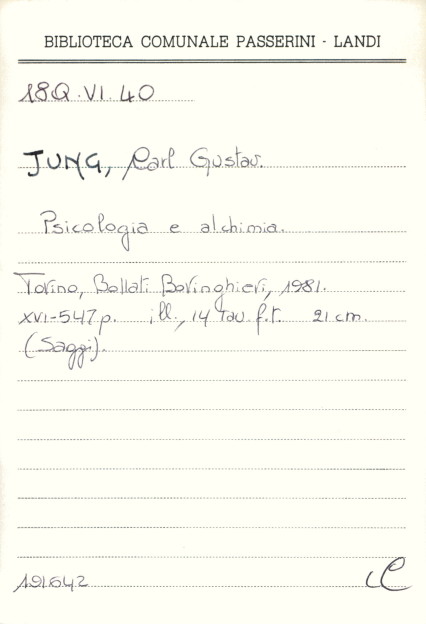 BIBLIOTECA COMUNALE PASSERINI - LANDI
18Q.VI.40
JUNG, Carl Gustav.
Psicologia e alchimia.
Torino, Bollati Boringhieri, 1981.
XVI-547 p. ill., 14 tav. f.t. 21 cm.
(Saggi).
191642